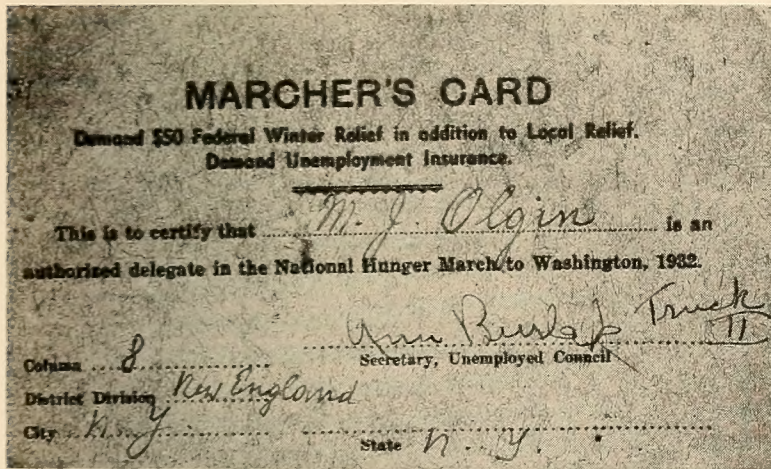 MARCHER'S CARD
Demand $50 Federal Winter Relief in addition to Local Relief.
Demand Unemployment Insurance.
This is to certify that M. J. Olgin is an
authorized delegate in the National Hunger March to Washington, 1932.
Ann Burlak Truck II
Column 8 Secretary, Unemployed Council
District Division New England
City N. Y State N. Y.